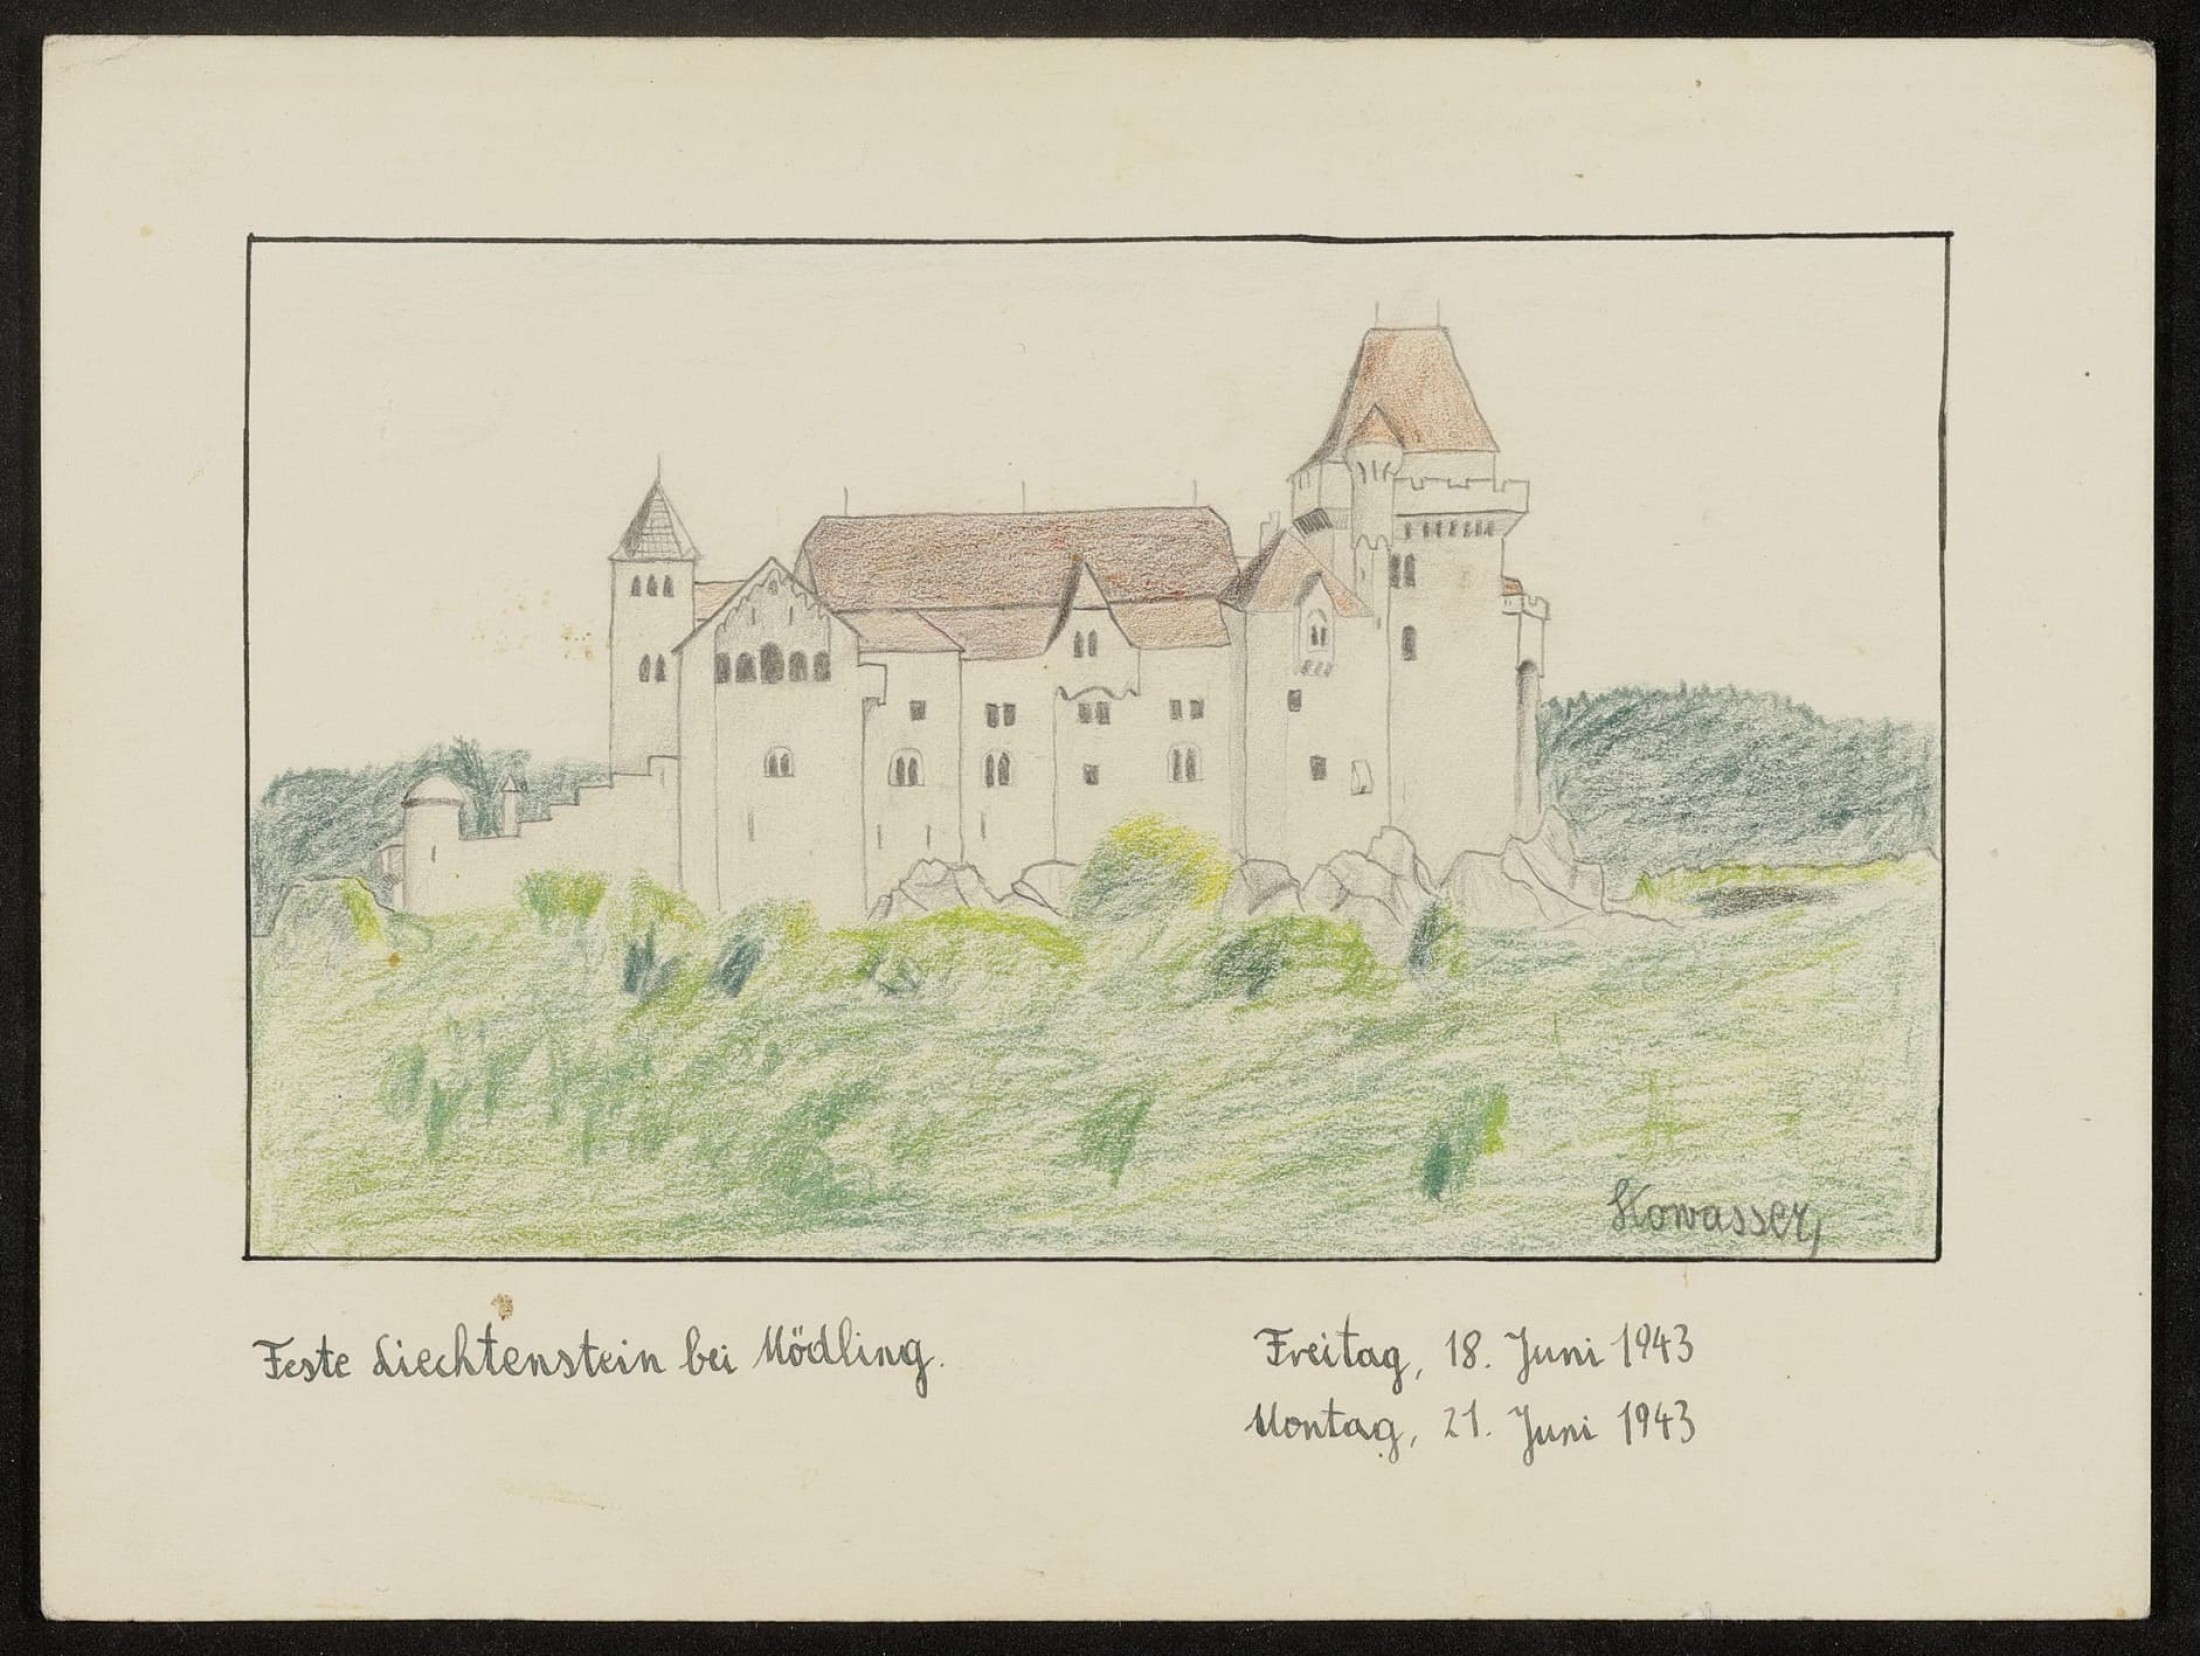 Stowasser,
Feste Liechtenstein bei Mödling.
Freitag, 18. Juni 1943
Montag, 21. Juni 1943